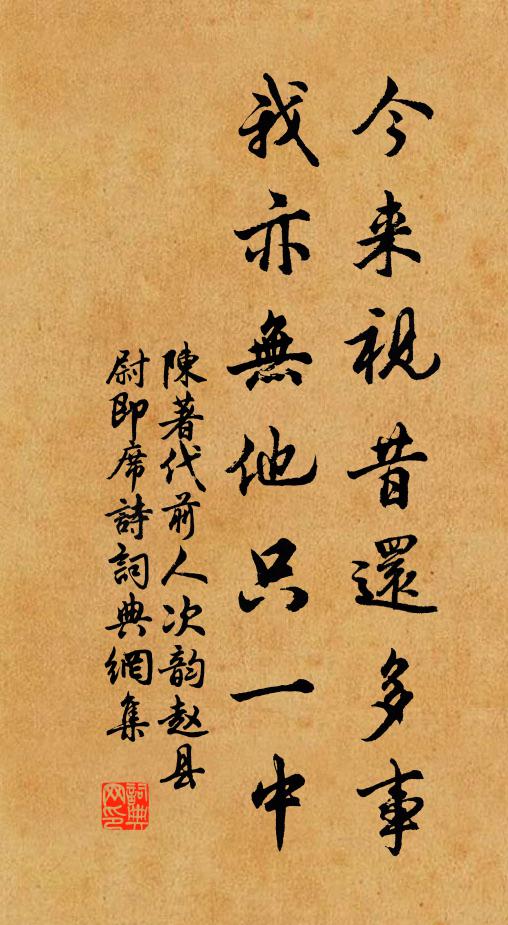 今来視昔還多事
我亦無他只一中
陳著代前人次韵赵县
尉即席詩詞典網集
詞典
网印